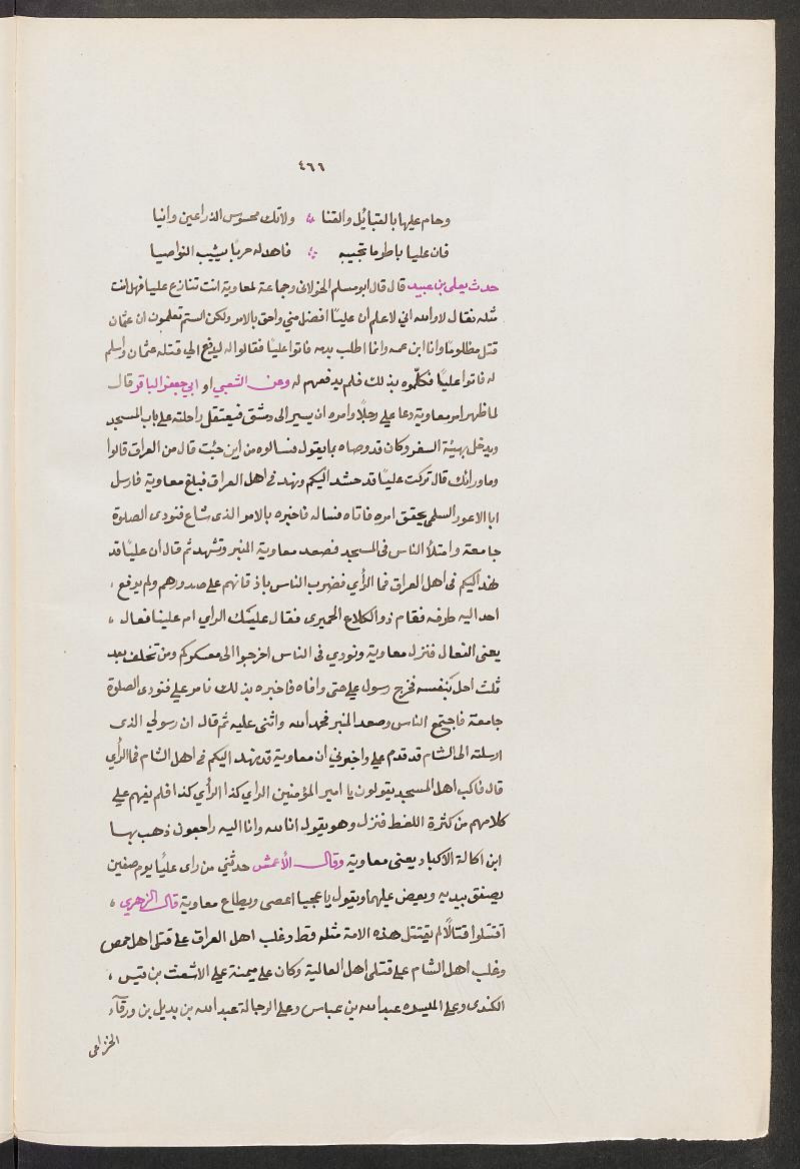 ٤٦٦
وحام عليها بالقبائل والقنا ؞ ولاتك محسوس الذراعين وانيا
فان عليا ناظر ما تجيبه ؞ فاهد له حربا يشيب النواصيا
حدث يعلى بن عبيد قال قال ابو مسلم الخولانى وجماعة لمعاوية انت تنازع عليا فهل انت
مثله فقال لا والله اني لاعلم ان عليًا افضل مني واحق بالامر ولكن الستم تعلمون ان عثمان
قتل مظلوما وانا ابن عمه وانا اطلب بدمه فاتوا عليا فقالوا له ليدفع الي قتلة عثمان واسلم
له فاتوا عليًا فكلّموه بذلك فلم يدفعهم له وعن الشعبي او ابي جعفر الباقر قال
لما ظهر امر معاوية دعا على رجلاً وامره ان يسير الى دمشق فيعتقل راحلته على باب المسجد
ويدخل بهيئة السفر وكان قد وصاه بما يقول فسالوه من اين جئت قال من العراق قالوا
وما ورائك قال تركت عليًا قد حشد اليكم ونهد فى اهل العراق فبلغ معاوية فارسل
ابا الاعور السلمى يحقق امره فاتاه فساله فاخبره بالامر الذى شاع فنودى الصلوة
جامعة وامتلأ الناس فى المسجد فصعد معاوية المنبر وتشهد ثم قال ان عليًا قد
نهد اليكم فى اهل العراق فما الرأي فضرب الناس باذقانهم على صدورهم ولم يرفع ،
احد اليه طرفه فقام ذو الكلاع الحميرى فقال عليك الراي ام علينا فعال ،
يعنى الفعال فنزل معاوية ونودي فى الناس اخرجوا الى معسكركم ومن تخلف بعد
ثلث احل بنفسه فخرج رسول على حتى وافاه فاخبره بذلك فامر على فنودى الصلوة
جامعة فاجتمع الناس وصعد المنبر فحمد الله واثنى عليه ثم قال ان رسولي الذى
ارسلته الى الشام قد قدم على واخبرني ان معاوية قد نهد اليكم فى اهل الشام فما الرأي
قال فاكب اهل المسجد يقولون يا امير المؤمنين الراي كذا الرأي كذا فلم يفهم على
كلامهم من كثرة اللغط فنزل وهو يقول انا لله وانا اليه راجعون ذهب بها
ابن اكالة الاكباد يعنى معاوية وقال الأعمش حدثني من راى عليًا يوم صفين
يصفق بيديه ويعض عليهما ويقول يا عجبا اعصى ويطاع معاوية قال الزهري ،
اقتتلوا قتالًا لم يقتتل هذه الامة مثله قط وغلب اهل العراق على قتلى اهل حمص
وغلب اهل الشام على قتلى اهل العالية وكان على ميمنة على الاشعث بن قيس ،
الكندى وعلى الميسره عبد الله بن عباس وعلى الرجالة عبد الله بن بديل بن ورقآء
الخزاعى